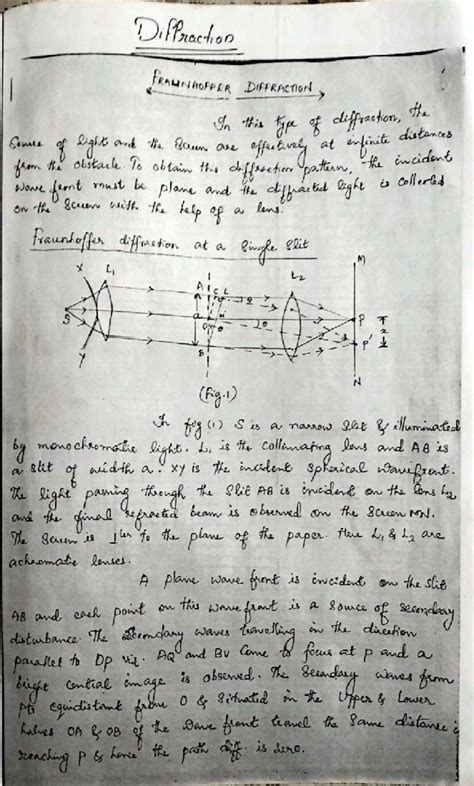 Diffraction
FRAUNHOFFER DIFFRACTION
In this type of diffraction, the
Source of light and the Screen are effectively at infinite distances
from the obstacle. To obtain this diffraction pattern, the incident
wave front must be plane and the diffracted light is collected
on the Screen with the help of a lens.
Fraunhoffer diffraction at a Single Slit
X L1 A C L L2 M
S a O θ P x
P'
Y B N
(Fig.1)
In fig (1) S is a narrow Slit & illuminated
by monochromatic light. L1 is the Collimating lens and AB is
a slit of width a. XY is the incident Spherical wavefront.
The light passing through the Slit AB is incident on the lens L2
and the final refracted beam is observed on the Screen MN.
The Screen is ⊥ler to the plane of the paper. Here L1 & L2 are
achromatic lenses.
A plane wave front is incident on the Slit
AB and each point on this wave front is a Source of secondary
disturbance. The Secondary waves travelling in the direction
parallel to Op viz. AQ and BV Come to focus at P and a
bright central image is observed. The Secondary waves from
pts equidistant from O & Situated in the Upper & Lower
halves OA & OB of the Wave front travel the Same distance
reaching P & hence the path diff. is zero.